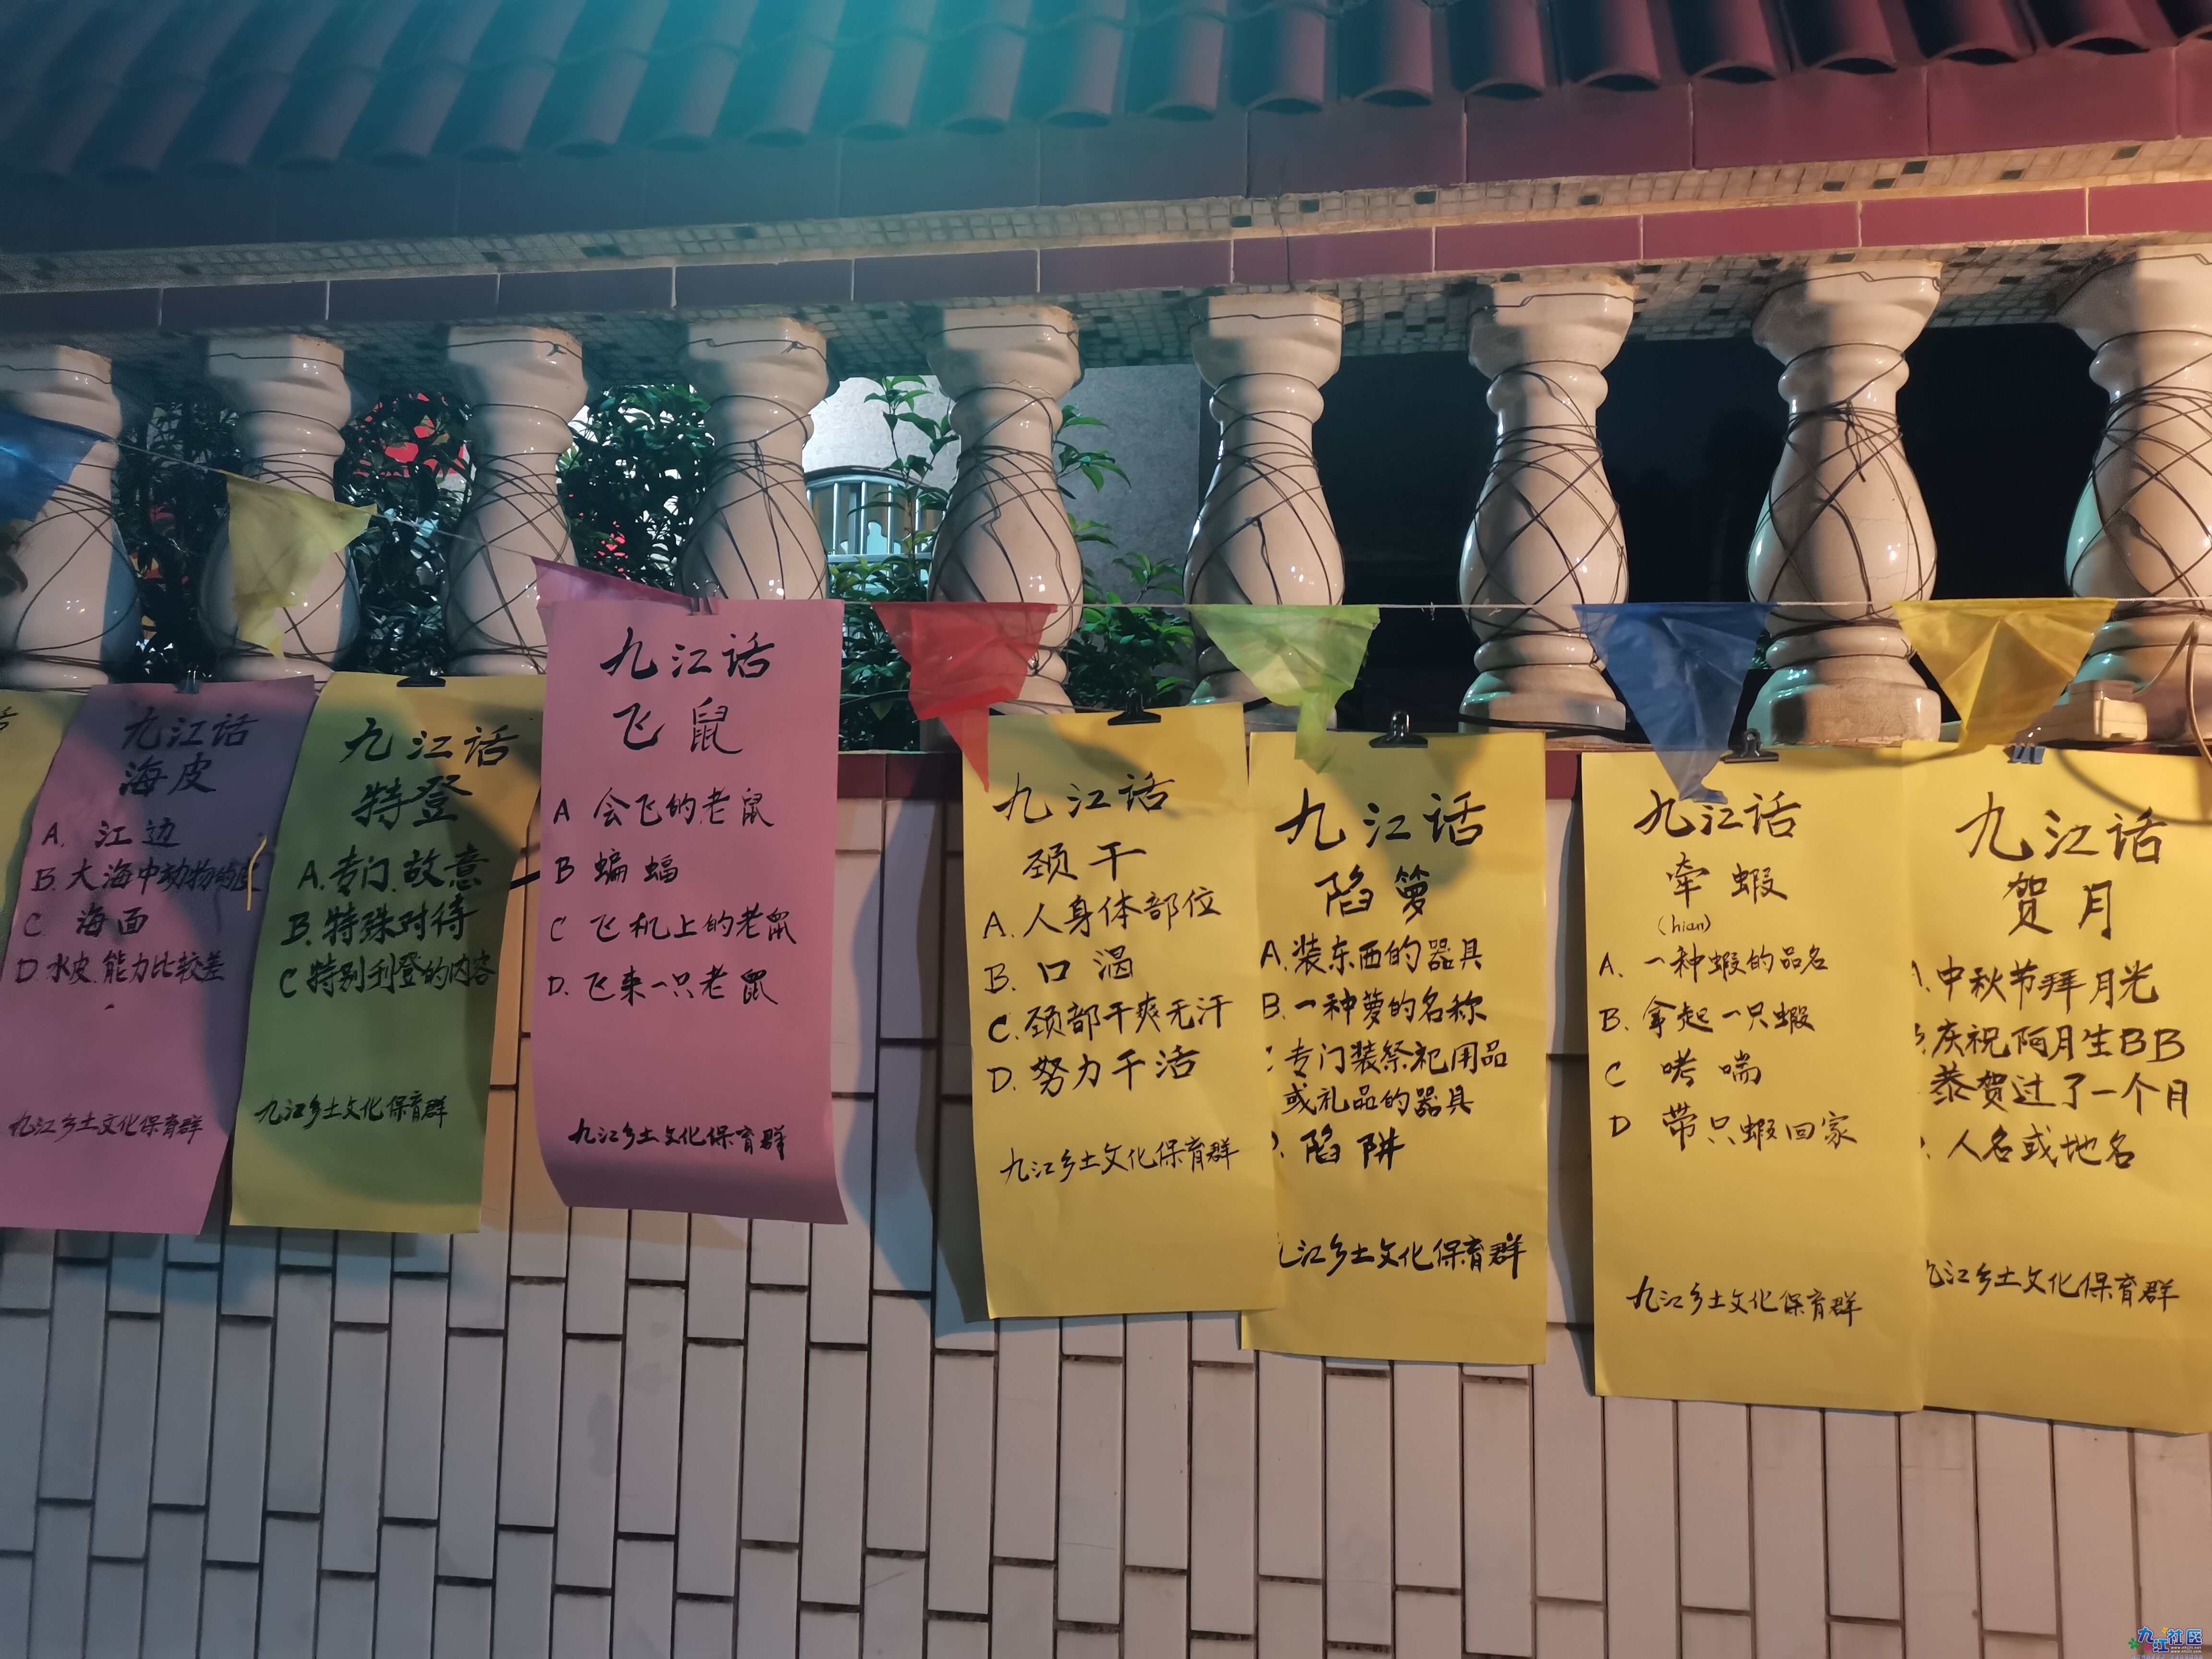 九江话
海皮
A. 江边
B. 大海中动物的皮
C 海面
D. 水皮 能力比较差
九江乡土文化保育群
九江话
特登
A. 专门.故意
B. 特殊对待
C 特别刊登的内容
九江乡土文化保育群
九江话
飞鼠
A 会飞的老鼠
B 蝙蝠
C 飞机上的老鼠
D. 飞来一只老鼠
九江乡土文化保育群
九江话
颈干
A. 人身体部位
B. 口渴
C. 颈部干爽无汗
D. 努力干活
九江乡土文化保育群
九江话
陷箩
A. 装东西的器具
B. 一种萝的名称
专门装祭祀用品
或礼品的器具
陷阱
九江乡土文化保育群
九江话
牵蝦
(hian)
A. 一种蝦的品名
B. 拿起一只蝦
C 哮喘
D 带只蝦回家
九江乡土文化保育群
九江话
贺月
中秋节拜月光
庆祝陌月生BB
恭贺过了一个月
人名或地名
九江乡土文化保育群
九江社区